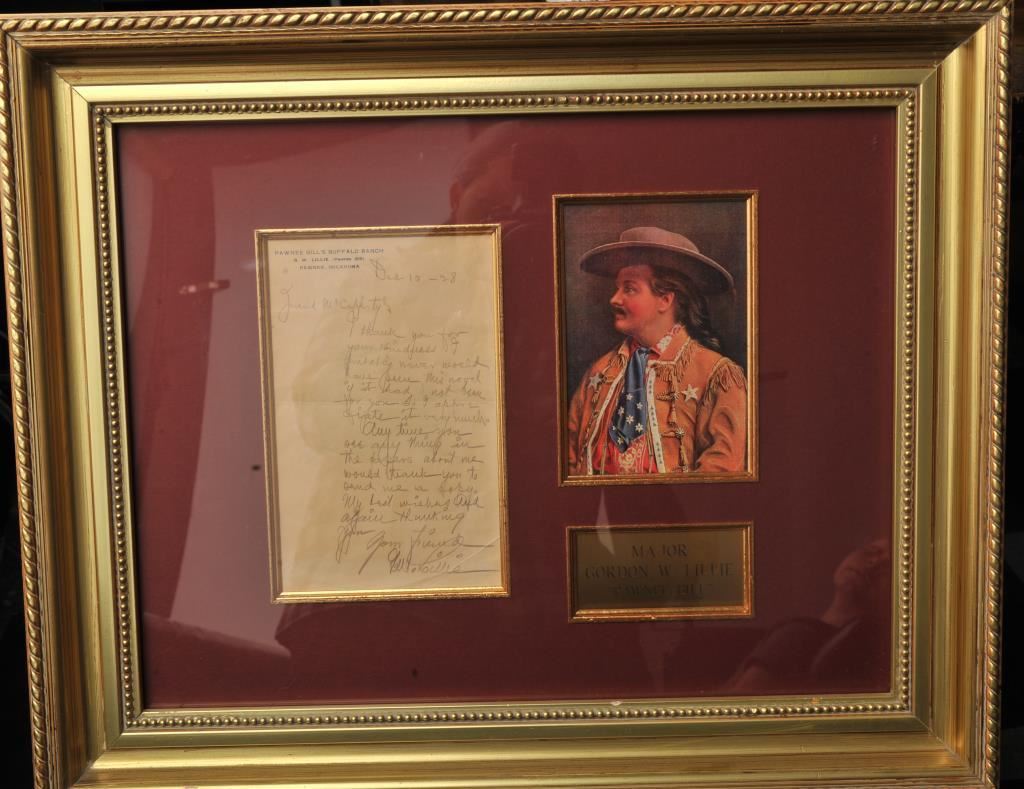 PAWNEE BILL'S BUFFALO RANCH
G. W. LILLIE (PAWNEE BILL)
PAWNEE, OKLAHOMA
Dec 10 - 28
Friend
I thank you for
your kindness I
probably never would
have seen this novel
if it had not been
for you &
it very much.
Any time you
see any thing in
the papers about me
would thank you to
send me a copy.
My best wishes and
again thanking
you
Your Friend
GW Lillie
MAJOR
GORDON W. LILLIE
"PAWNEE BILL"